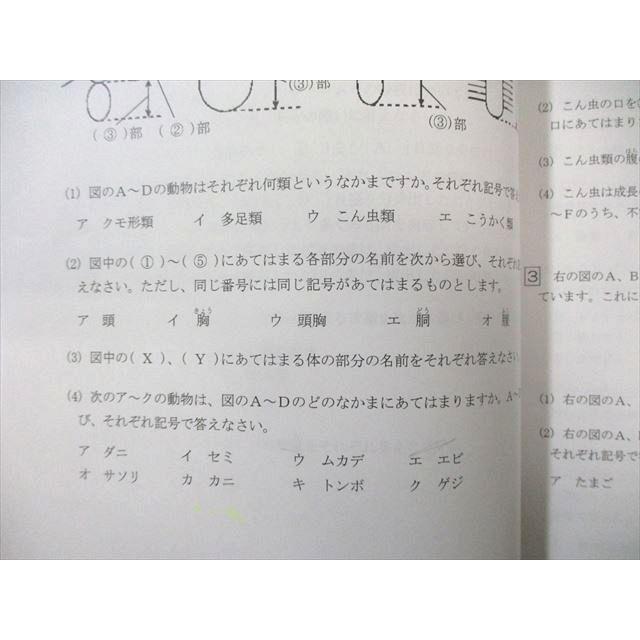 (③)部
(③)部 (②)部
(③)部
(1) 図のA～Dの動物はそれぞれ何類というなかまですか。それぞれ記号で答
ア クモ形類 イ 多足類 ウ こん虫類 エ こうかく類
(2) 図中の(①)～(⑤)にあてはまる各部分の名前を次から選び、それぞれ
えなさい。ただし、同じ番号には同じ記号があてはまるものとします。
ア 頭 イ 胸 ウ 頭胸 エ 胴 オ 腹
きょう どう
(3) 図中の(X)、(Y)にあてはまる体の部分の名前をそれぞれ答えなさい
(4) 次のア～クの動物は、図のA～Dのどのなかまにあてはまりますか。A～
び、それぞれ記号で答えなさい。
ア ダニ イ セミ ウ ムカデ エ エビ
オ サソリ カ カニ キ トンボ ク ゲジ
(2) こん虫の口を
口にあてはまり
(3) こん虫類の腹
(4) こん虫は成長
～Fのうち、不
3 右の図のA、B
ています。これに
(1) 右の図のA、
(2) 右の図のA、
それぞれ記号で
ア たまご